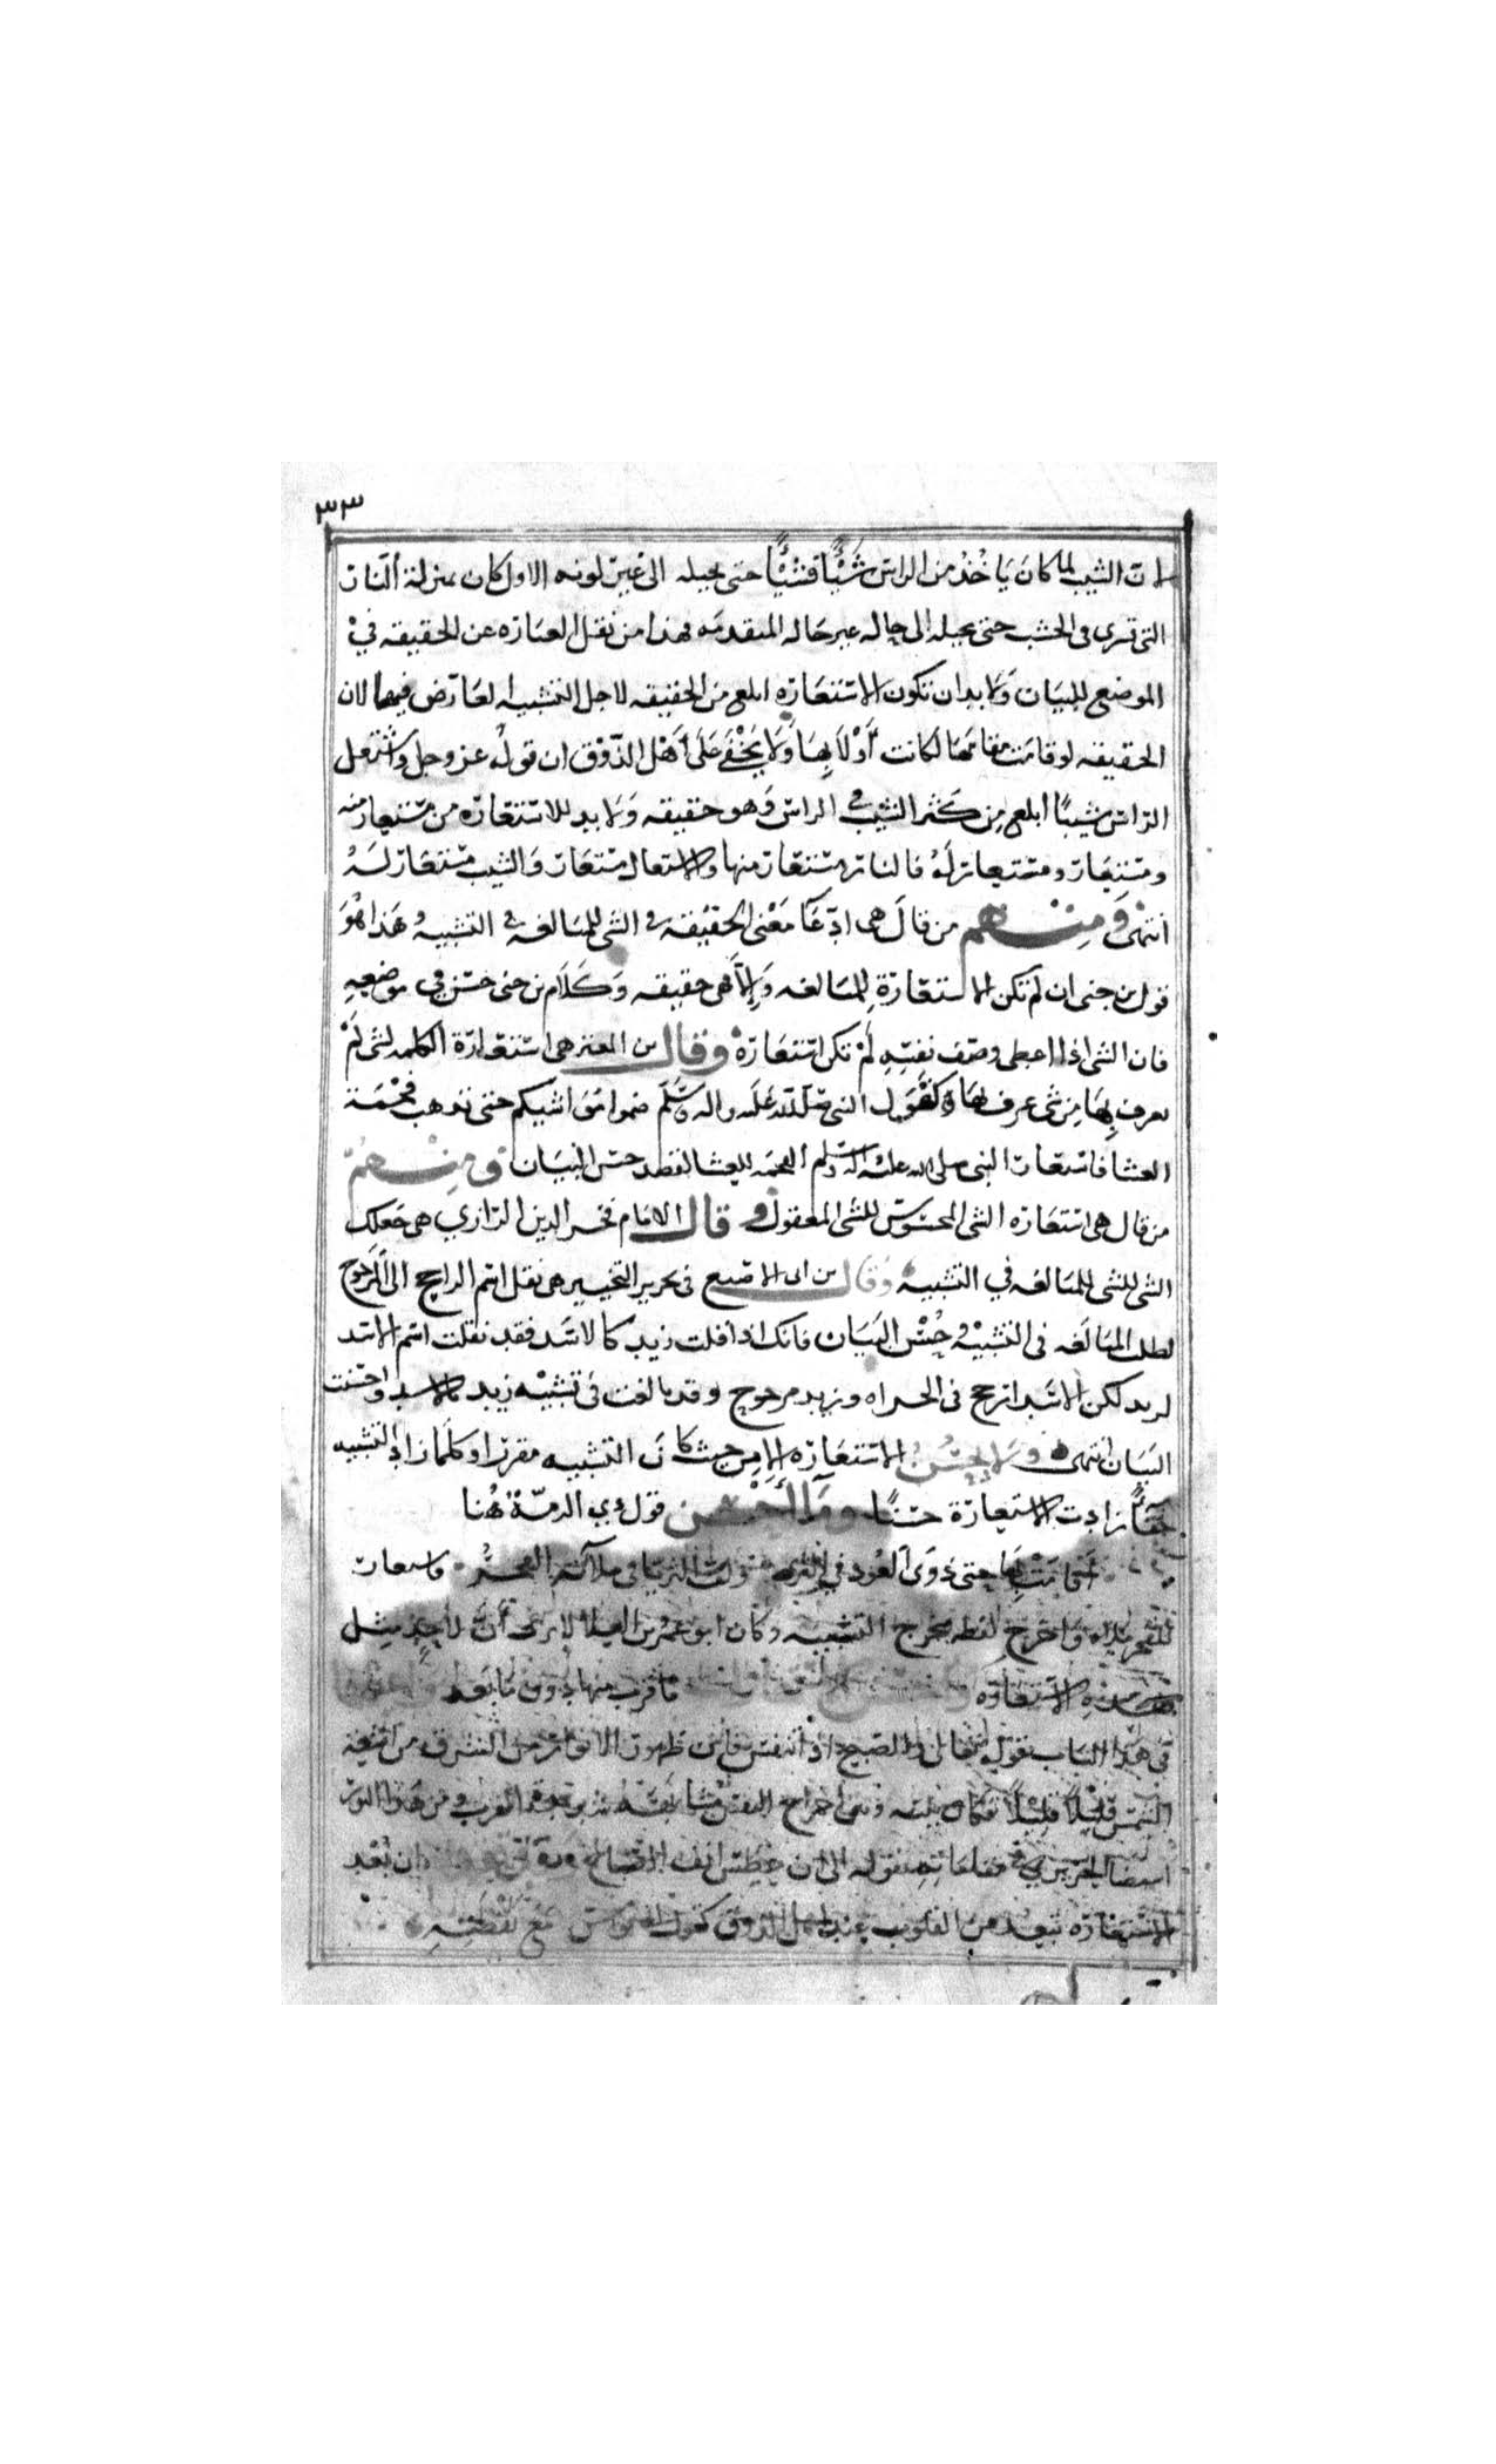 ٣٣
ان الشيب لما كان يَاخُذُ من الراس شَيْئًا فشَيْئًا حتى يحيله الى غير لونه الاول كان بمنزلة النار
التى تسرى فى الخشب حتى تحيله الى حاله غير حاله المتقدمه فهذا من نقل العبَاره عن الحقيقه فيْ
الموضع للبيَان وَلا بد ان تكون الاستعَاره ابلغ من الحقيقه لاجل التشبيه لعَارض فيهما لان
الحقيقه لو قامَت مقامَهَا لكانت أوْلَا بِهَا وَلا يَخْفَى عَلَى أهْل الذّوْق ان قولُه عز وجل واشتعل
الراس شيبًا ابلغ مِن كَثر الشيب فى الراس وَهو حقيقه وَلا بد للاستعَاره من مستعِار منه
ومستعَار ومستعار لَهُ فالنار مستعَار منها والاشتعال مستعَار وَالشيب مستعَار لَهُ
انتهى وَمِنْهم من قالَ هى ادّعَا مَعْنى الحقيقه فى الشى للمبَالغه فى التشبيهِ هَذا هُوَ
قول بن جنى ان لم تكن الاستعَارَة لِلمبَالغه وَإلاّ فهى حقيقه وَكَلام بن جنى حسَن فى موضعِهِ
فان الشى اذا اعطى وصَف نفسِهِ لمْ تكن استعَارَة وقال بن المعتز هى استعَارَة الكلمه لشى لَمْ
يعرف بِهَا مِن شى عرف بهَا كقَول النبى صَلّى الله عَلَيه واله وسَلّم ضموا مَوَاشيكم حتى تذهب فحْمَة
العشا فاستعَار النبى صلى الله عليه واله وسلم الفحمَه للعشا لقصد حسن البيَان وَمِنْهُمْ
من قال هى استعَاره الشى المحسُوس للشى المعقول وَقال الامَام فخر الدين الرازي هى جَعلك
الشى للشى للمبَالغه في التشبيه وَقال بن ابى الاصبع فى تحرير التحبير هى نقل اسم الراجح الى المرجوح
لطلب المبَالَغه فى التشبيْه وحُسْن البَيَان فانك اذا قلت زيد كالاسَد فقد نقلت اسم الاسد
لزيد لكن الاسَد ارجح فى الجراه وزيد مرجوح وقد بالغت فى تشبيْه زيد بالاسد واحسنت
البيَان انتهى وَلا يحسُن الاستعَاره إلا مِن حيث كانَ التشبيه مقررًا وكلَما زاد التشبيه
خفًا زادت الاستعِارَة حسْنًا ومَا أحْسَن قول ذي الرمّة هُنا
أقامَتْ بِهَا حتى ذوَى العُود في الثرى وَلف الثريا فى ملاءته الفجْرُ فاستعار
للفجر ملاه وَاخرج لفظه مخرج التشبيه وكان ابو عمرو بن العلا لا يرى أنّ لأحدٍ مِثل
هَذِه الاستعَاره مَا قرب منها دون مَا بَعد
فى هَذا البَاب بقوله تعَالى والصبح اذا تنفس فان ظهور الانوار من المشرق من اشعة
الشمس قليْلاً قليْلاً
الحريري فى مقامَاتِه بقوله الى ان عطس انف الصباح ان تبْعد
الاستعَاره تبعد من القلوب عِند اهل الذوق كقول ابى نواس مَعَ لفظِهِ